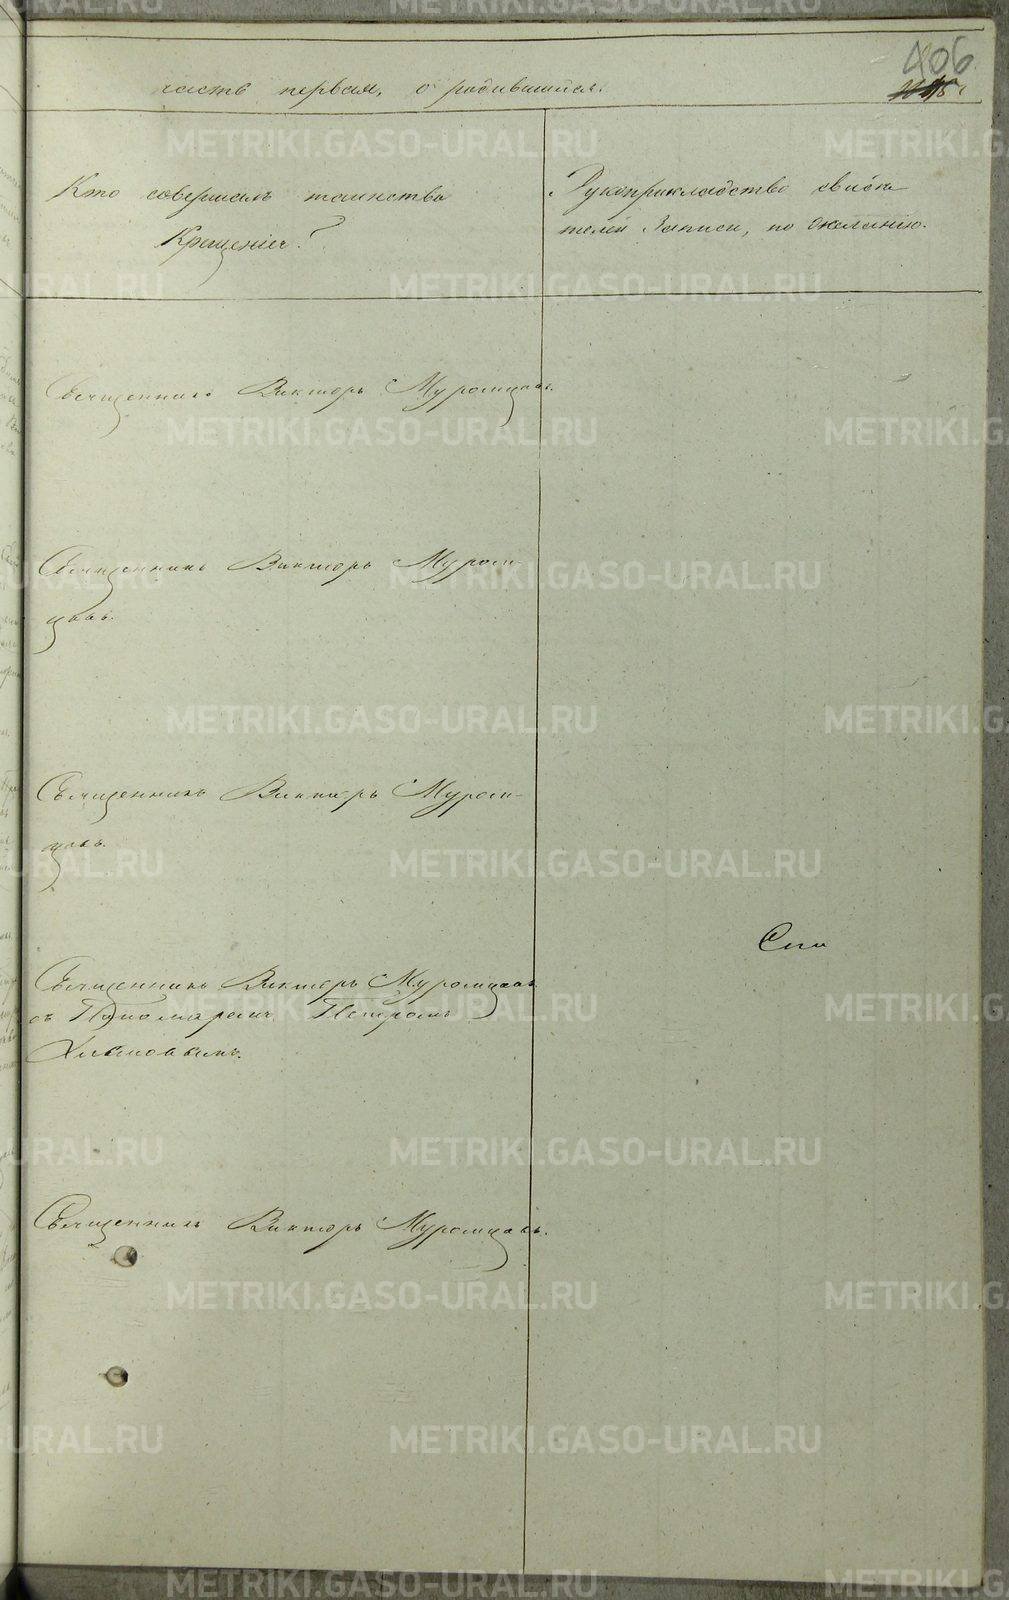 406
часть первая, о родившихся.
Кто совершалъ таинство
Крещенія?
Рукоприкладство свидѣ
телей записи, по желанію.
Священникъ Викторъ Муромцовъ.
Священникъ Викторъ Муром-
цовъ.
Священникъ Викторъ Муром-
цовъ.
Священникъ Викторъ Муромцовъ
съ Пономаремъ Петромъ
Священникъ Викторъ Муромцовъ.
METRIKI.GASO-URAL.RU